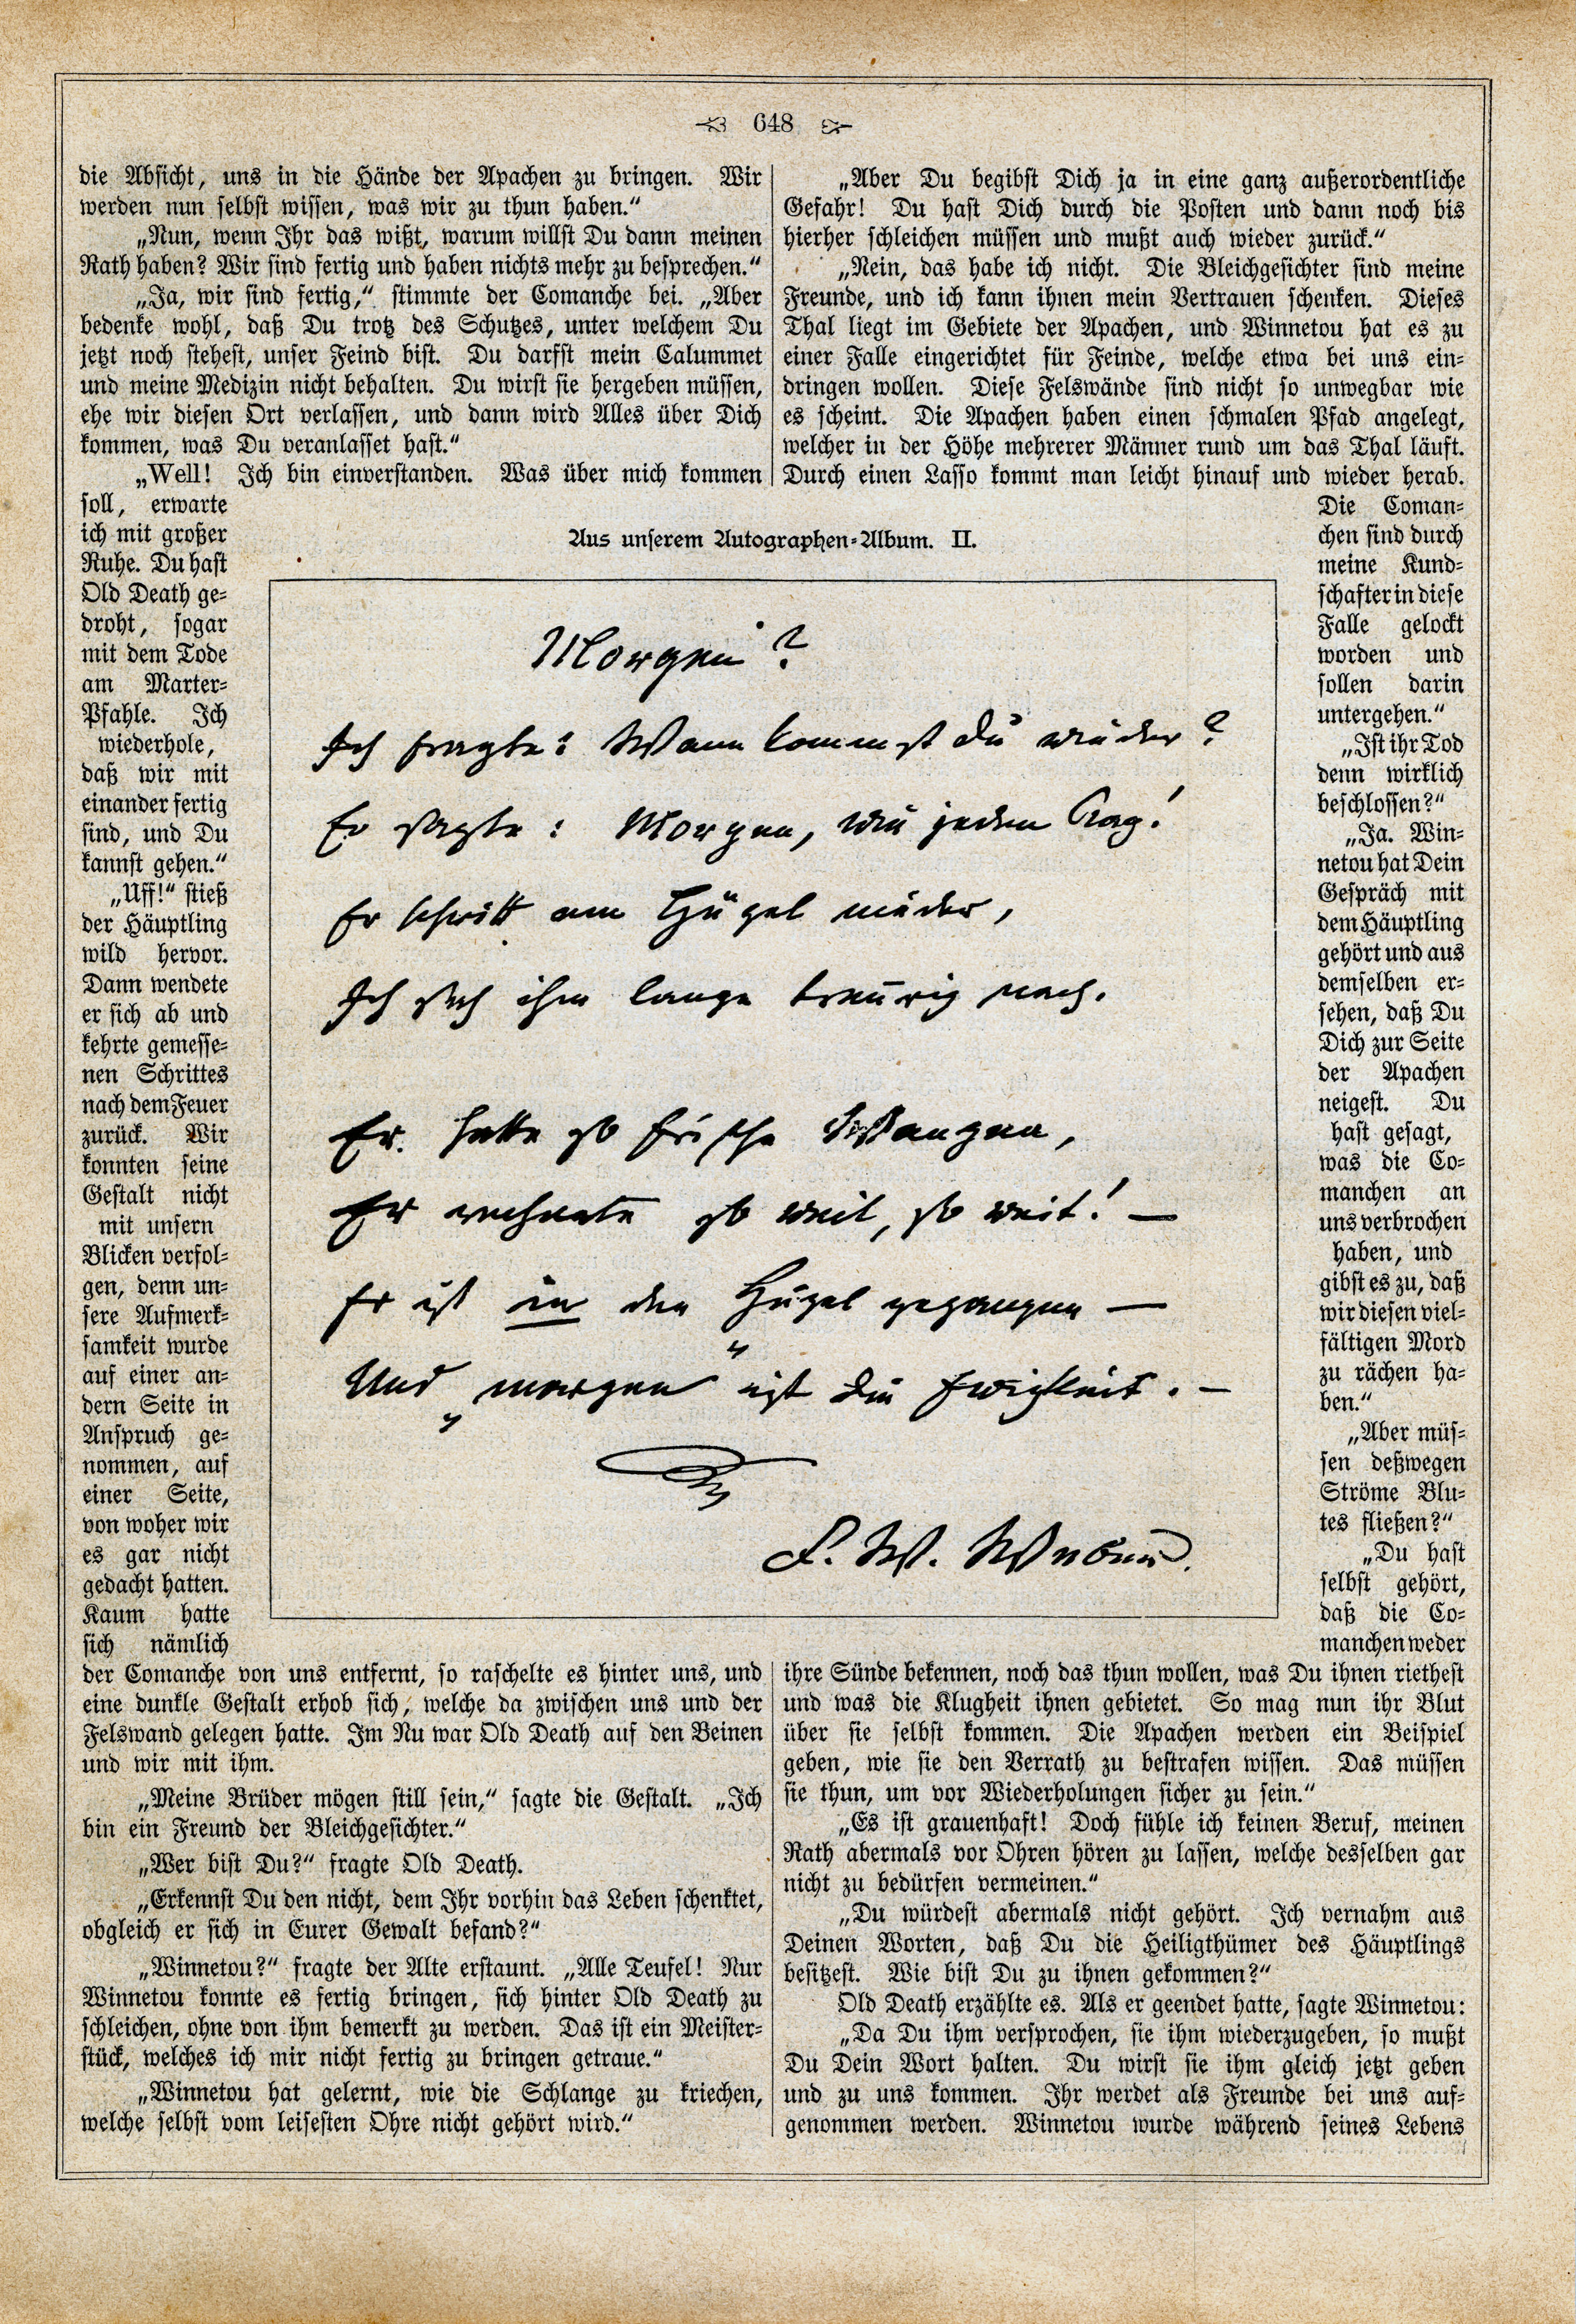 648
die Absicht, uns in die Hände der Apachen zu bringen. Wir
werden nun selbst wissen, was wir zu thun haben.“
„Nun, wenn Ihr das wißt, warum willst Du dann meinen
Rath haben? Wir sind fertig und haben nichts mehr zu besprechen.“
„Ja, wir sind fertig,“ stimmte der Comanche bei. „Aber
bedenke wohl, daß Du trotz des Schutzes, unter welchem Du
jetzt noch stehest, unser Feind bist. Du darfst mein Calummet
und meine Medizin nicht behalten. Du wirst sie hergeben müssen,
ehe wir diesen Ort verlassen, und dann wird Alles über Dich
kommen, was Du veranlasset hast.“
„Well! Ich bin einverstanden. Was über mich kommen
soll, erwarte
ich mit großer
Ruhe. Du hast
Old Death ge-
droht, sogar
mit dem Tode
am Marter-
Pfahle. Ich
wiederhole,
daß wir mit
einander fertig
sind, und Du
kannst gehen.“
„Uff!“ stieß
der Häuptling
wild hervor.
Dann wendete
er sich ab und
kehrte gemesse-
nen Schrittes
nach dem Feuer
zurück. Wir
konnten seine
Gestalt nicht
mit unsern
Blicken verfol-
gen, denn un-
sere Aufmerk-
samkeit wurde
auf einer an-
dern Seite in
Anspruch ge-
nommen, auf
einer Seite,
von woher wir
es gar nicht
gedacht hatten.
Kaum hatte
sich nämlich
der Comanche von uns entfernt, so raschelte es hinter uns, und
eine dunkle Gestalt erhob sich, welche da zwischen uns und der
Felswand gelegen hatte. Im Nu war Old Death auf den Beinen
und wir mit ihm.
„Meine Brüder mögen still sein,“ sagte die Gestalt. „Ich
bin ein Freund der Bleichgesichter.“
„Wer bist Du?“ fragte Old Death.
„Erkennst Du den nicht, dem Ihr vorhin das Leben schenktet,
obgleich er sich in Eurer Gewalt befand?“
„Winnetou?“ fragte der Alte erstaunt. „Alle Teufel! Nur
Winnetou konnte es fertig bringen, sich hinter Old Death zu
schleichen, ohne von ihm bemerkt zu werden. Das ist ein Meister-
stück, welches ich mir nicht fertig zu bringen getraue.“
„Winnetou hat gelernt, wie die Schlange zu kriechen,
welche selbst vom leisesten Ohre nicht gehört wird.“
Aus unserem Autographen-Album. II.
Morgen?
Ich fragte: Wann kommst du wieder?
Er sagte: Morgen, wie jeden Tag!
Er schritt am Hügel nieder,
Ich sah ihm lange traurig nach.
Er hatte so frische Wangen,
Er wohnte so weit, so weit! —
Er ist in den Hügel gegangen —
Und „morgen“ ist die Ewigkeit. —
F. W. Weber.
„Aber Du begibst Dich ja in eine ganz außerordentliche
Gefahr! Du hast Dich durch die Posten und dann noch bis
hierher schleichen müssen und mußt auch wieder zurück.“
„Nein, das habe ich nicht. Die Bleichgesichter sind meine
Freunde, und ich kann ihnen mein Vertrauen schenken. Dieses
Thal liegt im Gebiete der Apachen, und Winnetou hat es zu
einer Falle eingerichtet für Feinde, welche etwa bei uns ein-
dringen wollen. Diese Felswände sind nicht so unwegbar wie
es scheint. Die Apachen haben einen schmalen Pfad angelegt,
welcher in der Höhe mehrerer Männer rund um das Thal läuft.
Durch einen Lasso kommt man leicht hinauf und wieder herab.
Die Coman-
chen sind durch
meine Kund-
schafter in diese
Falle gelockt
worden und
sollen darin
untergehen.“
„Ist ihr Tod
denn wirklich
beschlossen?“
„Ja. Win-
netou hat Dein
Gespräch mit
dem Häuptling
gehört und aus
demselben er-
sehen, daß Du
Dich zur Seite
der Apachen
neigest. Du
hast gesagt,
was die Co-
manchen an
uns verbrochen
haben, und
gibst es zu, daß
wir diesen viel-
fältigen Mord
zu rächen ha-
ben.“
„Aber müs-
sen deßwegen
Ströme Blu-
tes fließen?“
„Du hast
selbst gehört,
daß die Co-
manchen weder
ihre Sünde bekennen, noch das thun wollen, was Du ihnen riethest
und was die Klugheit ihnen gebietet. So mag nun ihr Blut
über sie selbst kommen. Die Apachen werden ein Beispiel
geben, wie sie den Verrath zu bestrafen wissen. Das müssen
sie thun, um vor Wiederholungen sicher zu sein.“
„Es ist grauenhaft! Doch fühle ich keinen Beruf, meinen
Rath abermals vor Ohren hören zu lassen, welche desselben gar
nicht zu bedürfen vermeinen.“
„Du würdest abermals nicht gehört. Ich vernahm aus
Deinen Worten, daß Du die Heiligthümer des Häuptlings
besitzest. Wie bist Du zu ihnen gekommen?“
Old Death erzählte es. Als er geendet hatte, sagte Winnetou:
„Da Du ihm versprochen, sie ihm wiederzugeben, so mußt
Du Dein Wort halten. Du wirst sie ihm gleich jetzt geben
und zu uns kommen. Ihr werdet als Freunde bei uns auf-
genommen werden. Winnetou wurde während seines Lebens